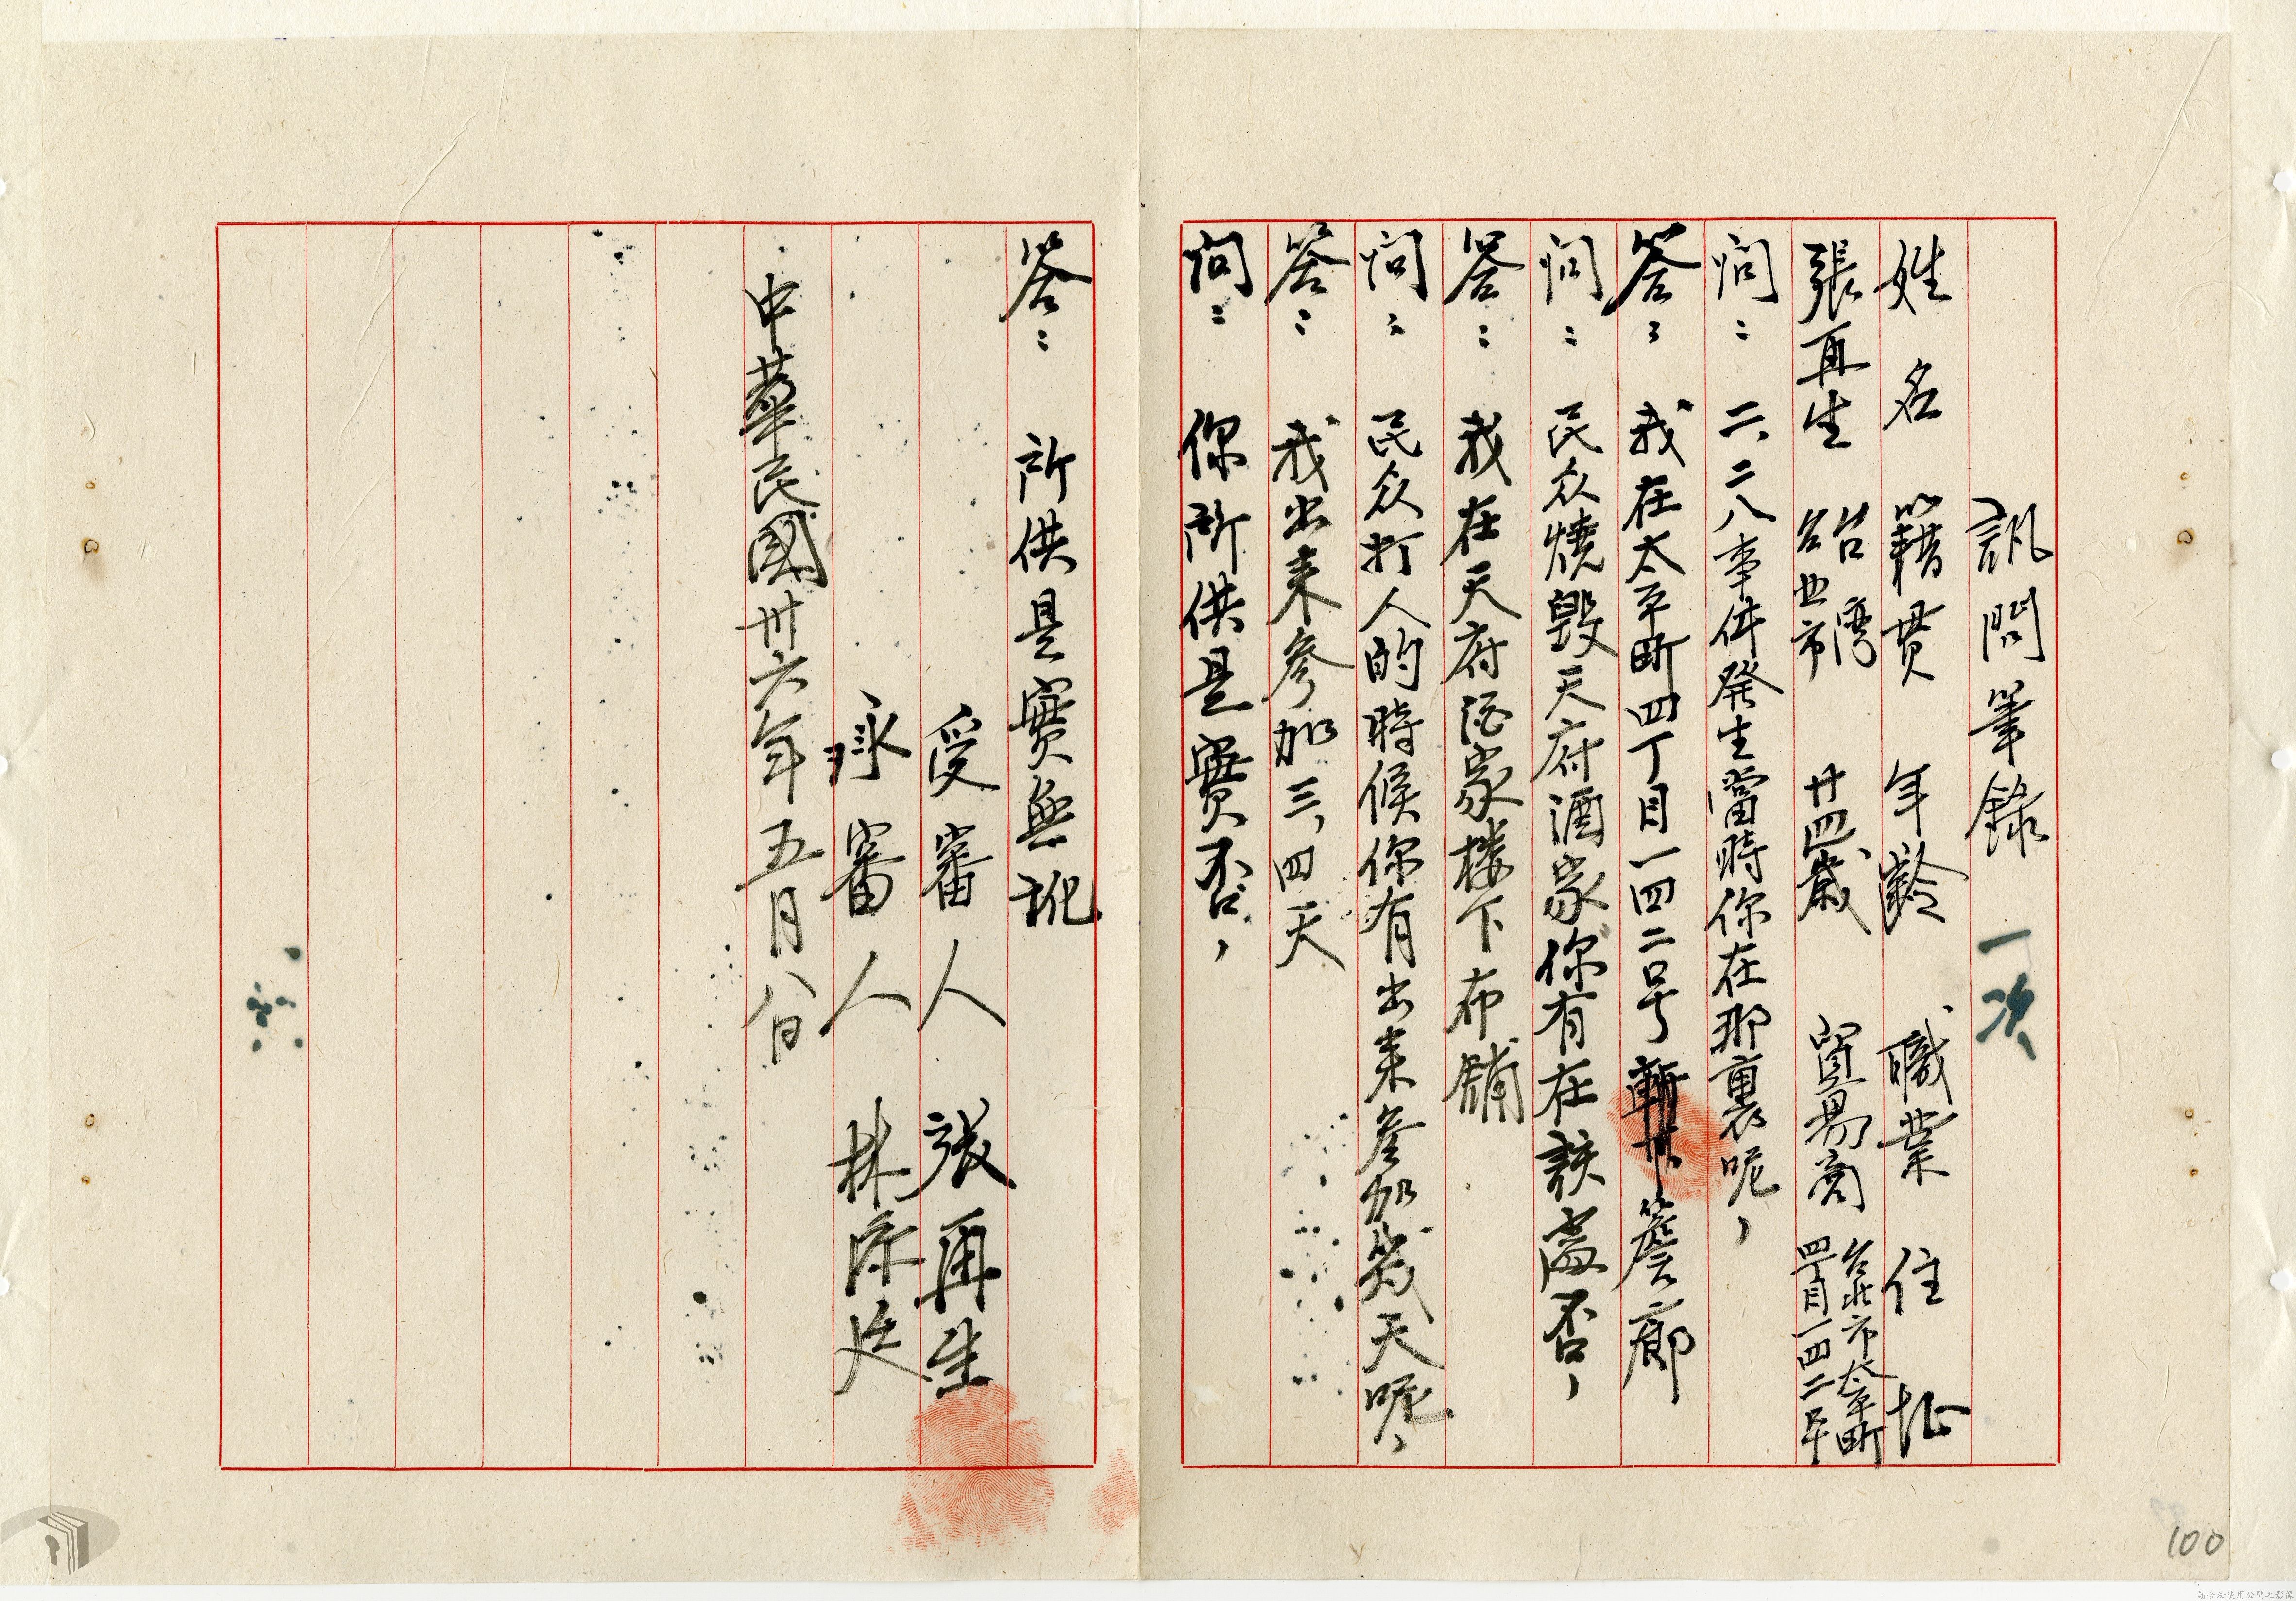 訊問筆錄 一次
姓名 籍貫 年齡 職業 住址
張再生 台灣台北市 廿四歲 貿易商 台北市太平町四丁目一四二号
問：二、二八事件発生當時你在那裏呢，
答：我在太平町四丁目一四二号 簷廊
問：民众燒毀天府酒家你有在該處否，
答：我在天府酒家楼下布舖
問：民众打人的時候你有出来參加幾天呢，
答：我出来參加三、四天
問：你所供是實否，
答：所供是實無訛
受審人 張再生
承審人 林
中華民國卅六年五月八日
100
請合法使用公開之影像